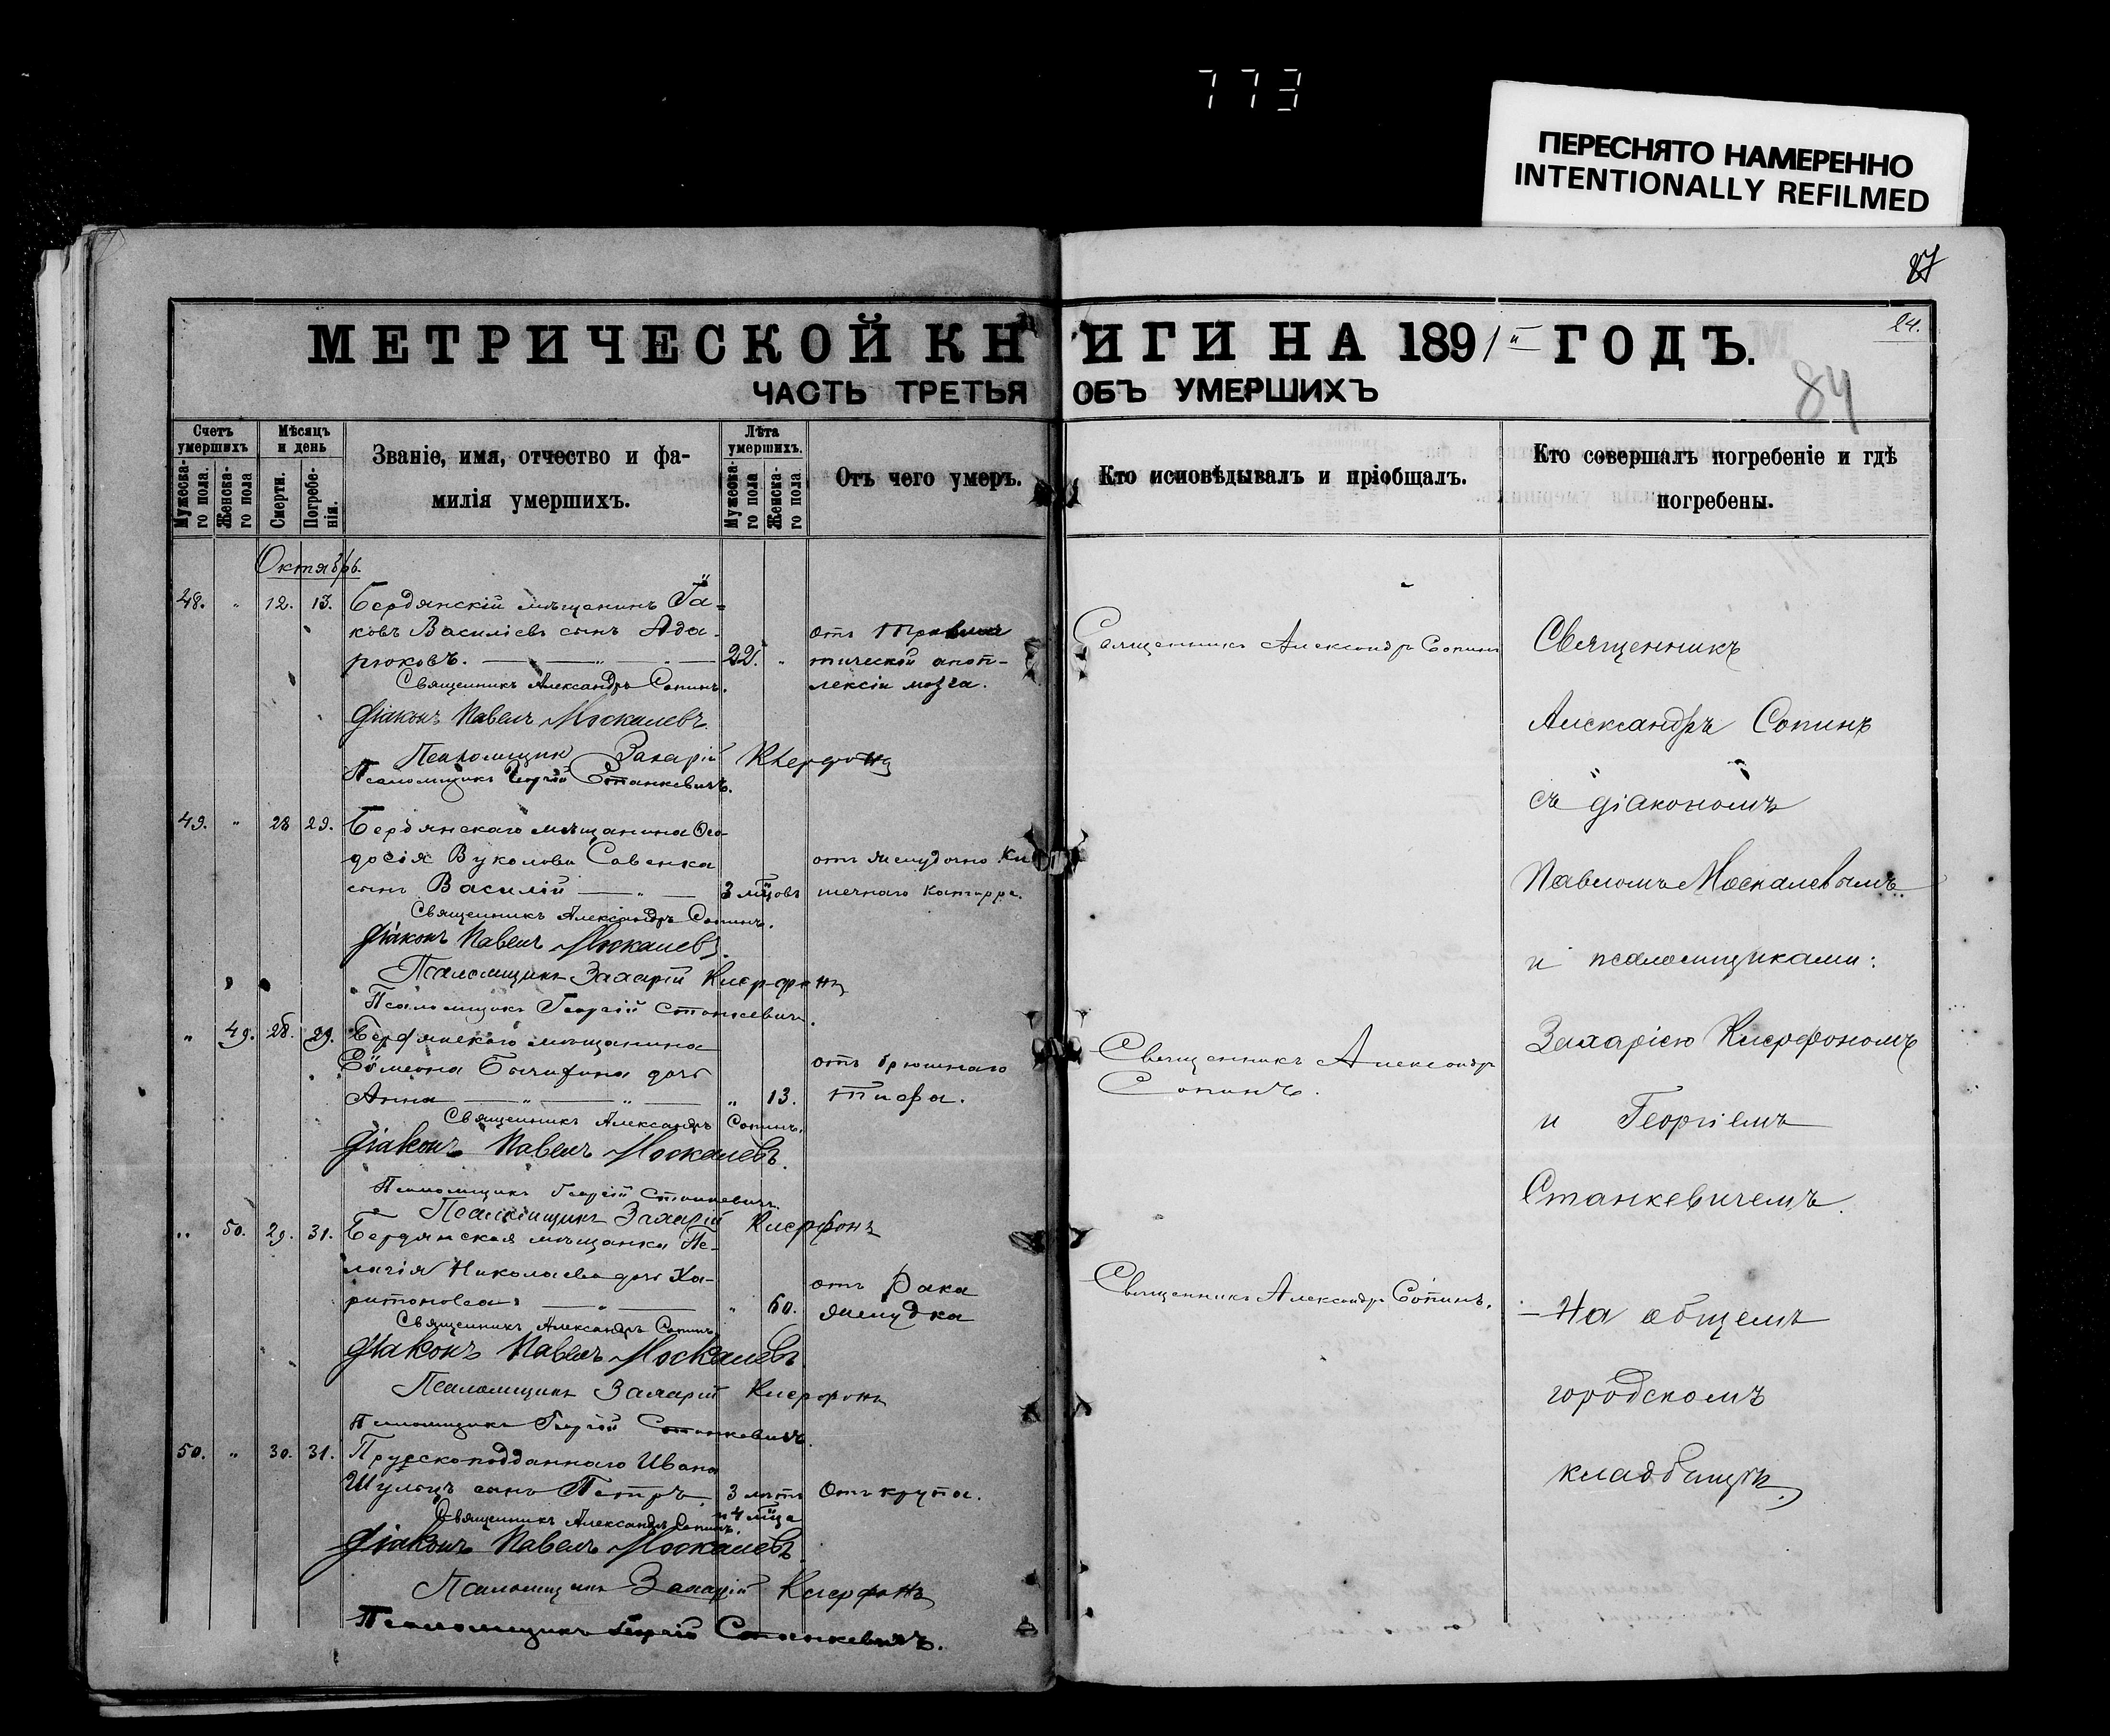 773
ПЕРЕСНЯТО НАМЕРЕННО
INTENTIONALLY REFILMED
87
МЕТРИЧЕСКОЙ КНИГИ НА 1891й ГОДЪ.
24.
ЧАСТЬ ТРЕТЬЯ ОБЪ УМЕРШИХЪ
84
Счетъ умершихъ
Мужеска-го пола.
Женска-го пола
Мѣсяцъ и день
Смерти.
Погребе-нія.
Званіе, имя, отчество и фа-
милія умершихъ.
Лѣта умершихъ.
Мужеска-го пола
Женска-го пола
Отъ чего умеръ.
Кто исповѣдывалъ и пріобщалъ.
Кто совершалъ погребеніе и гдѣ
погребены.
Октябрь.
48. " 12. 13. Бердянскій мѣщанинъ Іа-
ковъ Василіевъ сынъ Ада-
рюковъ. 22. "
отъ
тической апоп-
лексіи мозга.
Священникъ Александръ Сопинъ
Священникъ Александръ Сопинъ.
Діаконъ Павелъ Москалевъ.
Псаломщикъ Захарій Клерфонъ
Псаломщикъ Георгій Станкевичъ.
49. " 28 29. Бердянскаго мѣщанина Ѳео-
досія Вуколова Савенка
сынъ Василій 3 мѣцовъ
отъ желудочно ки
шечнаго катарра.
Священникъ Александръ Сопинъ.
Діаконъ Павелъ Москалевъ.
Псаломщикъ Захарій Клерфонъ
Псаломщикъ Георгій Станкевичъ.
" 49. 28. 29. Бердянскаго мѣщанина
Симеона дочь
Анна " 13.
отъ брюшнаго
тифа.
Священникъ Александръ
Сопинъ.
Священникъ Александръ Сопинъ.
Діаконъ Павелъ Москалевъ.
Псаломщикъ Георгій Станкевичъ.
Псаломщикъ Захарій Клерфонъ
" 50. 29. 31. Бердянская мѣщанка Пе-
лагія Николаева дочь Ха-
ритонова " 60.
отъ рака
желудка
Священникъ Александръ Сопинъ.
Священникъ Александръ Сопинъ
Діаконъ Павелъ Москалевъ.
Псаломщикъ Захарій Клерфонъ
Псаломщикъ Георгій Станкевичъ.
50. " 30. 31. Прусскоподданнаго Ивана
Шульцъ сынъ Петръ. 3 лѣтъ
и 4 мѣца
Отъ крупа.
Священникъ Александръ Сопинъ.
Діаконъ Павелъ Москалевъ.
Псаломщикъ Захарій Клерфонъ
Псаломщикъ Георгій Станкевичъ.
Священникъ
Александръ Сопинъ
съ діакономъ
Павломъ Москалевымъ
и псаломщиками:
Захаріею Клерфономъ
и Георгіемъ
Станкевичемъ.
На общемъ
городскомъ
кладбищѣ.